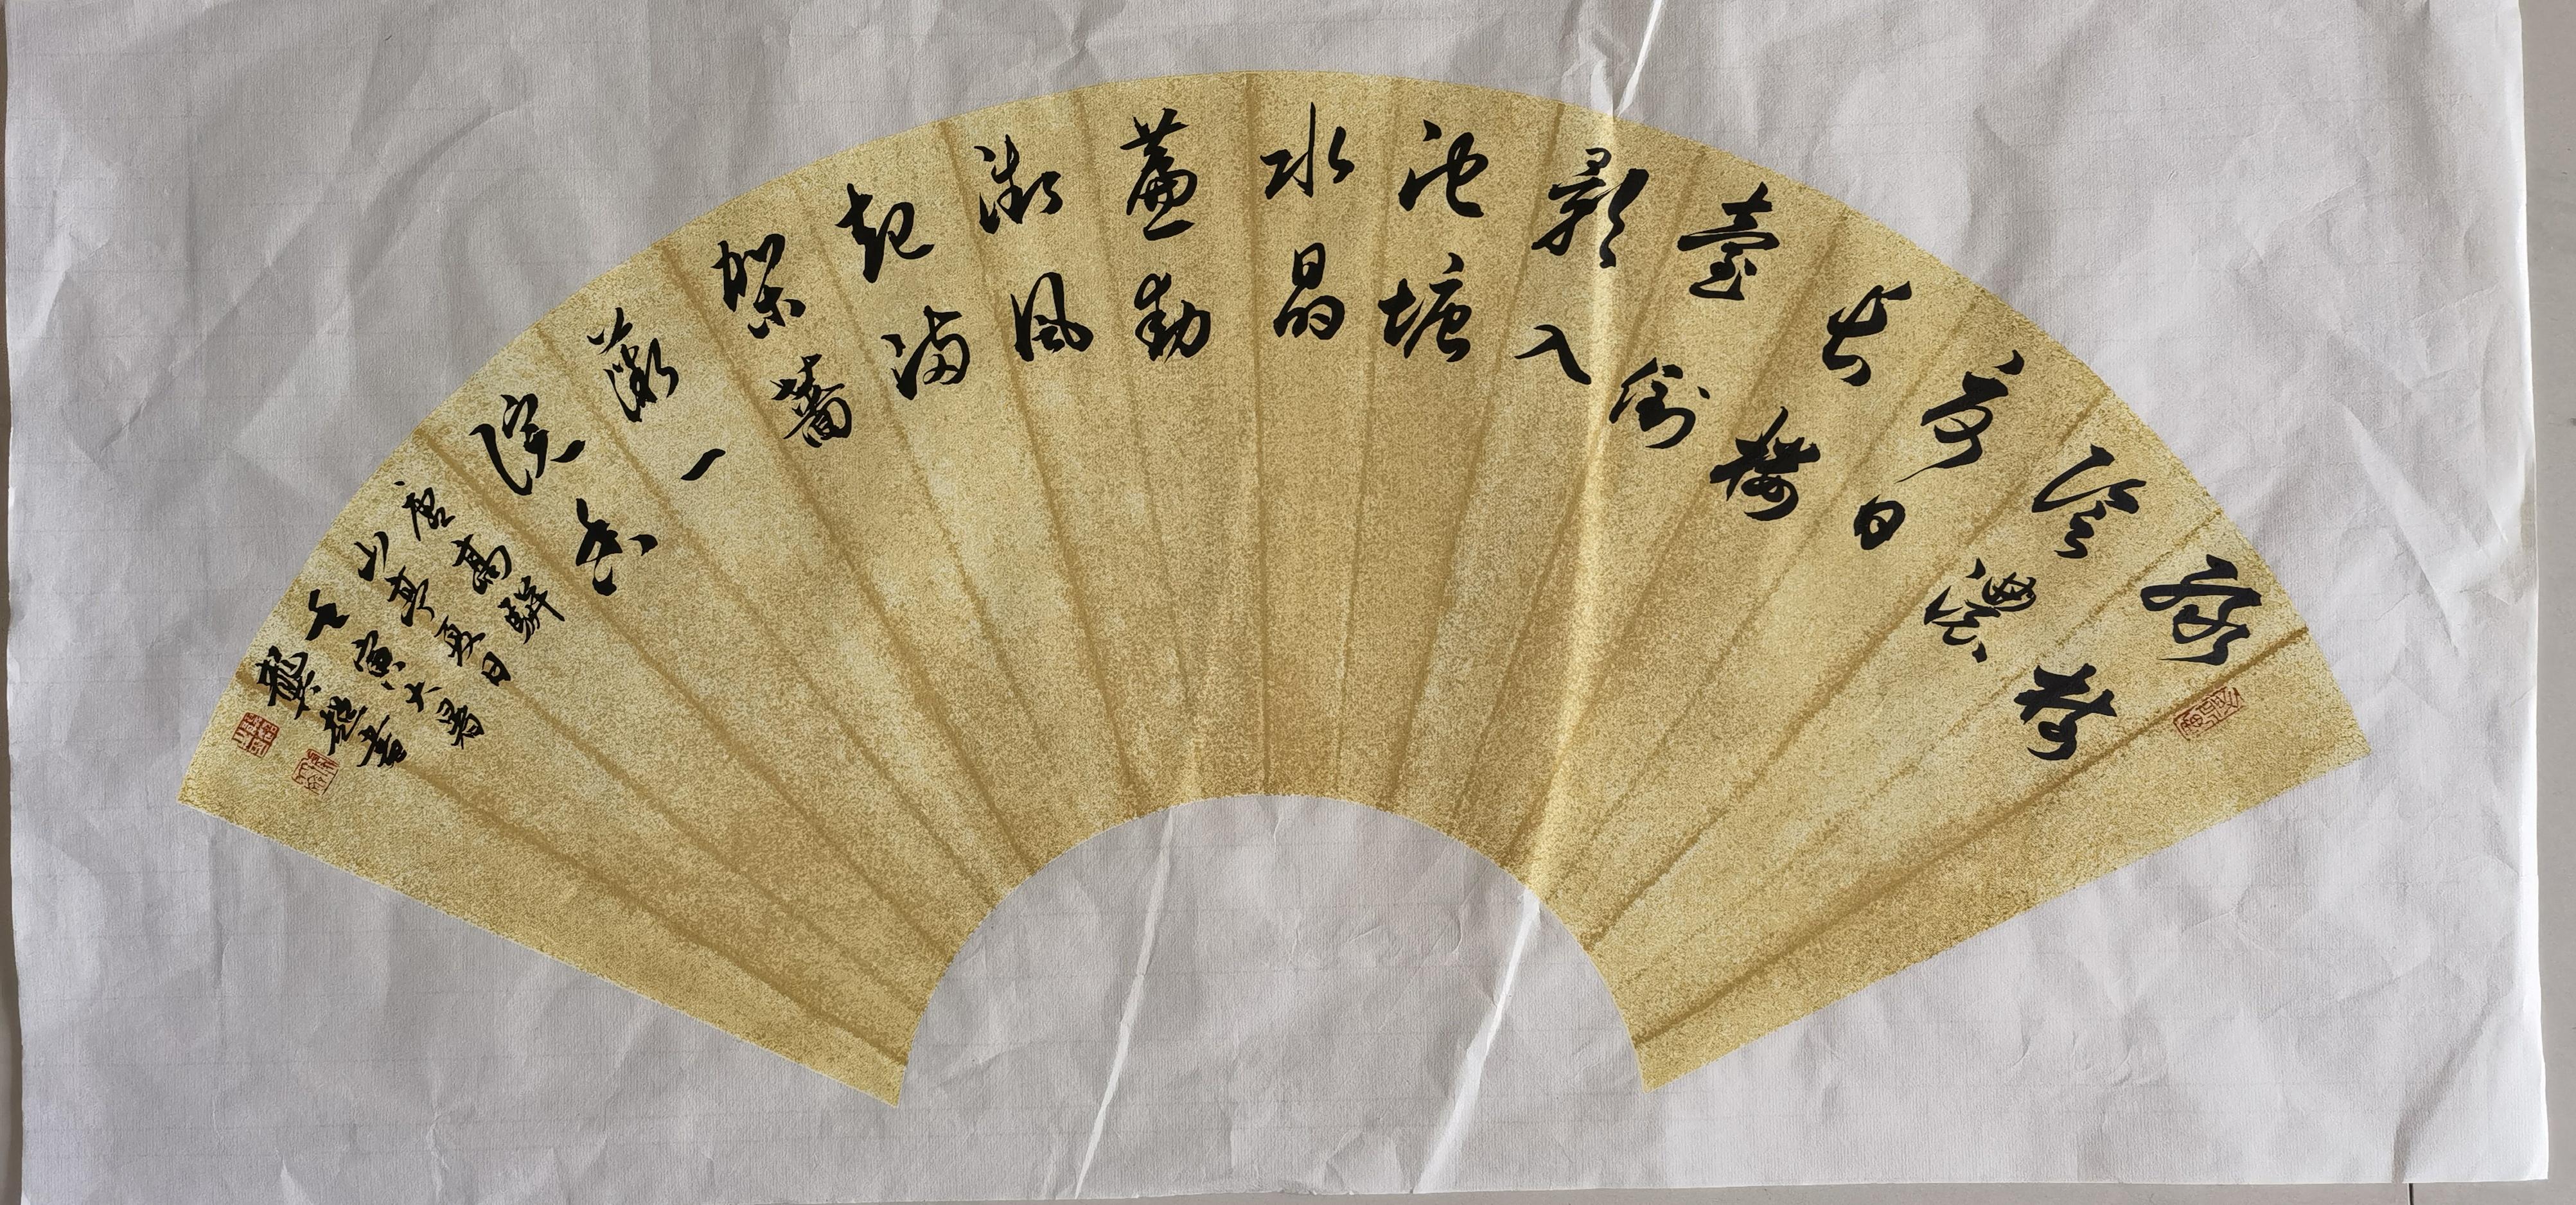 綠樹
陰濃
夏日
長樓
臺倒
影入
池塘
水晶
簾動
微風
起滿
架薔
薇一
院香
唐高駢
山亭夏日
壬寅大暑
龔超書